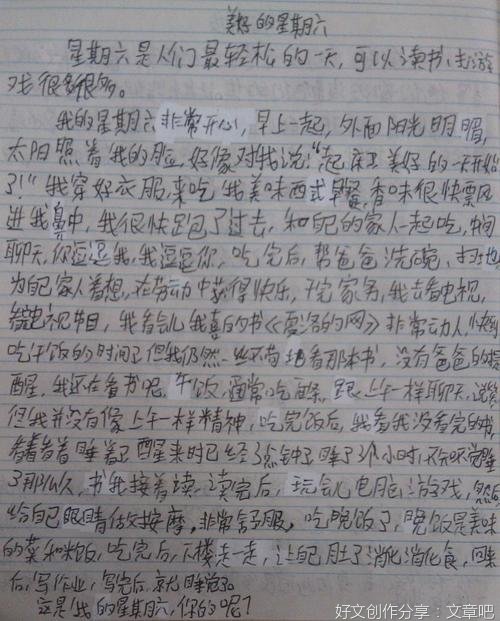 美好的星期六
星期六是人们最轻松的一天,可以读书、去游
戏很多很多。
我的星期六非常开心,早上一起,外面阳光明媚,
太阳照着我的脸,好像对我说:“起床了美好的一天开始
了!”我穿好衣服,来吃我美味西式早餐,香味很快飘风
进我鼻中,我很快跑了过去,和自己的家人一起吃,中间
聊天,你逗逗我,我逗逗你,吃完后,帮爸爸洗碗,扫地
为自己家人着想,在劳动中获得快乐,干完家务,我去看电视,
电视节目,我看会儿我喜的书《夏洛的网》非常动人,快到
吃午饭的时间了但我仍然一丝不苟地看那本书,没有爸爸的提
醒,我还在看书呢。午饭,通常吃面条,跟上午一样聊天,说笑
但我并没有像上午一样精神,吃完饭后,我看我没看完的书
看着看着睡着了醒来时已经3点钟了睡了3个小时,不知不觉睡
了那么久,书我接着读,读完后,玩会儿电脑游戏,然后
给自己眼睛做按摩,非常舒服,吃晚饭了,晚饭是美味
的菜和米饭,吃完后,下楼走一走,让自己肚子消化消化食,回来
后,写作业,写完后,就睡觉了。
这是我的星期六,你的呢?
好文创作分享:文章吧